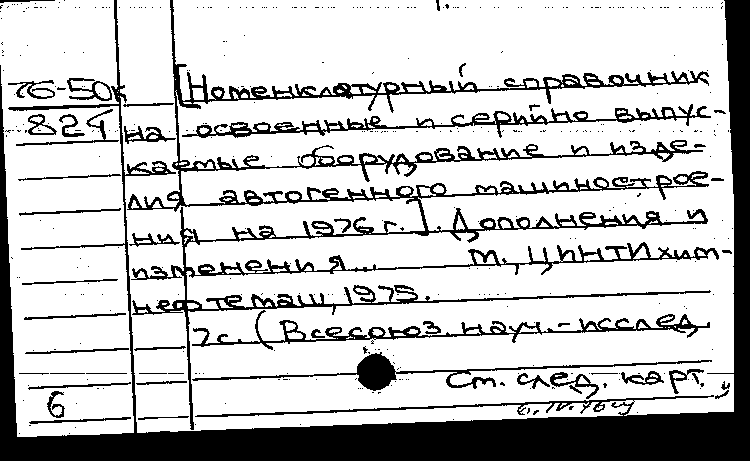 76-50к
824
[Номенклатурный справочник
на освоенные и серийно выпус-
каемые оборудование и изде-
лия автогенного машинострое-
ния на 1976 г.]. Дополнения и
изменения... М., ЦИНТИхим-
нефтемаш, 1975.
7с. (Всесоюз. науч.-исслед.
См. след. карт.
6